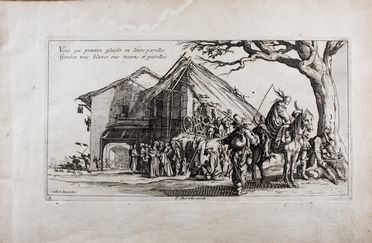 Vous qui prenez plaisir en leurs parolles
Gardez vos blancs vos testons et pistolles
Callot Inventor